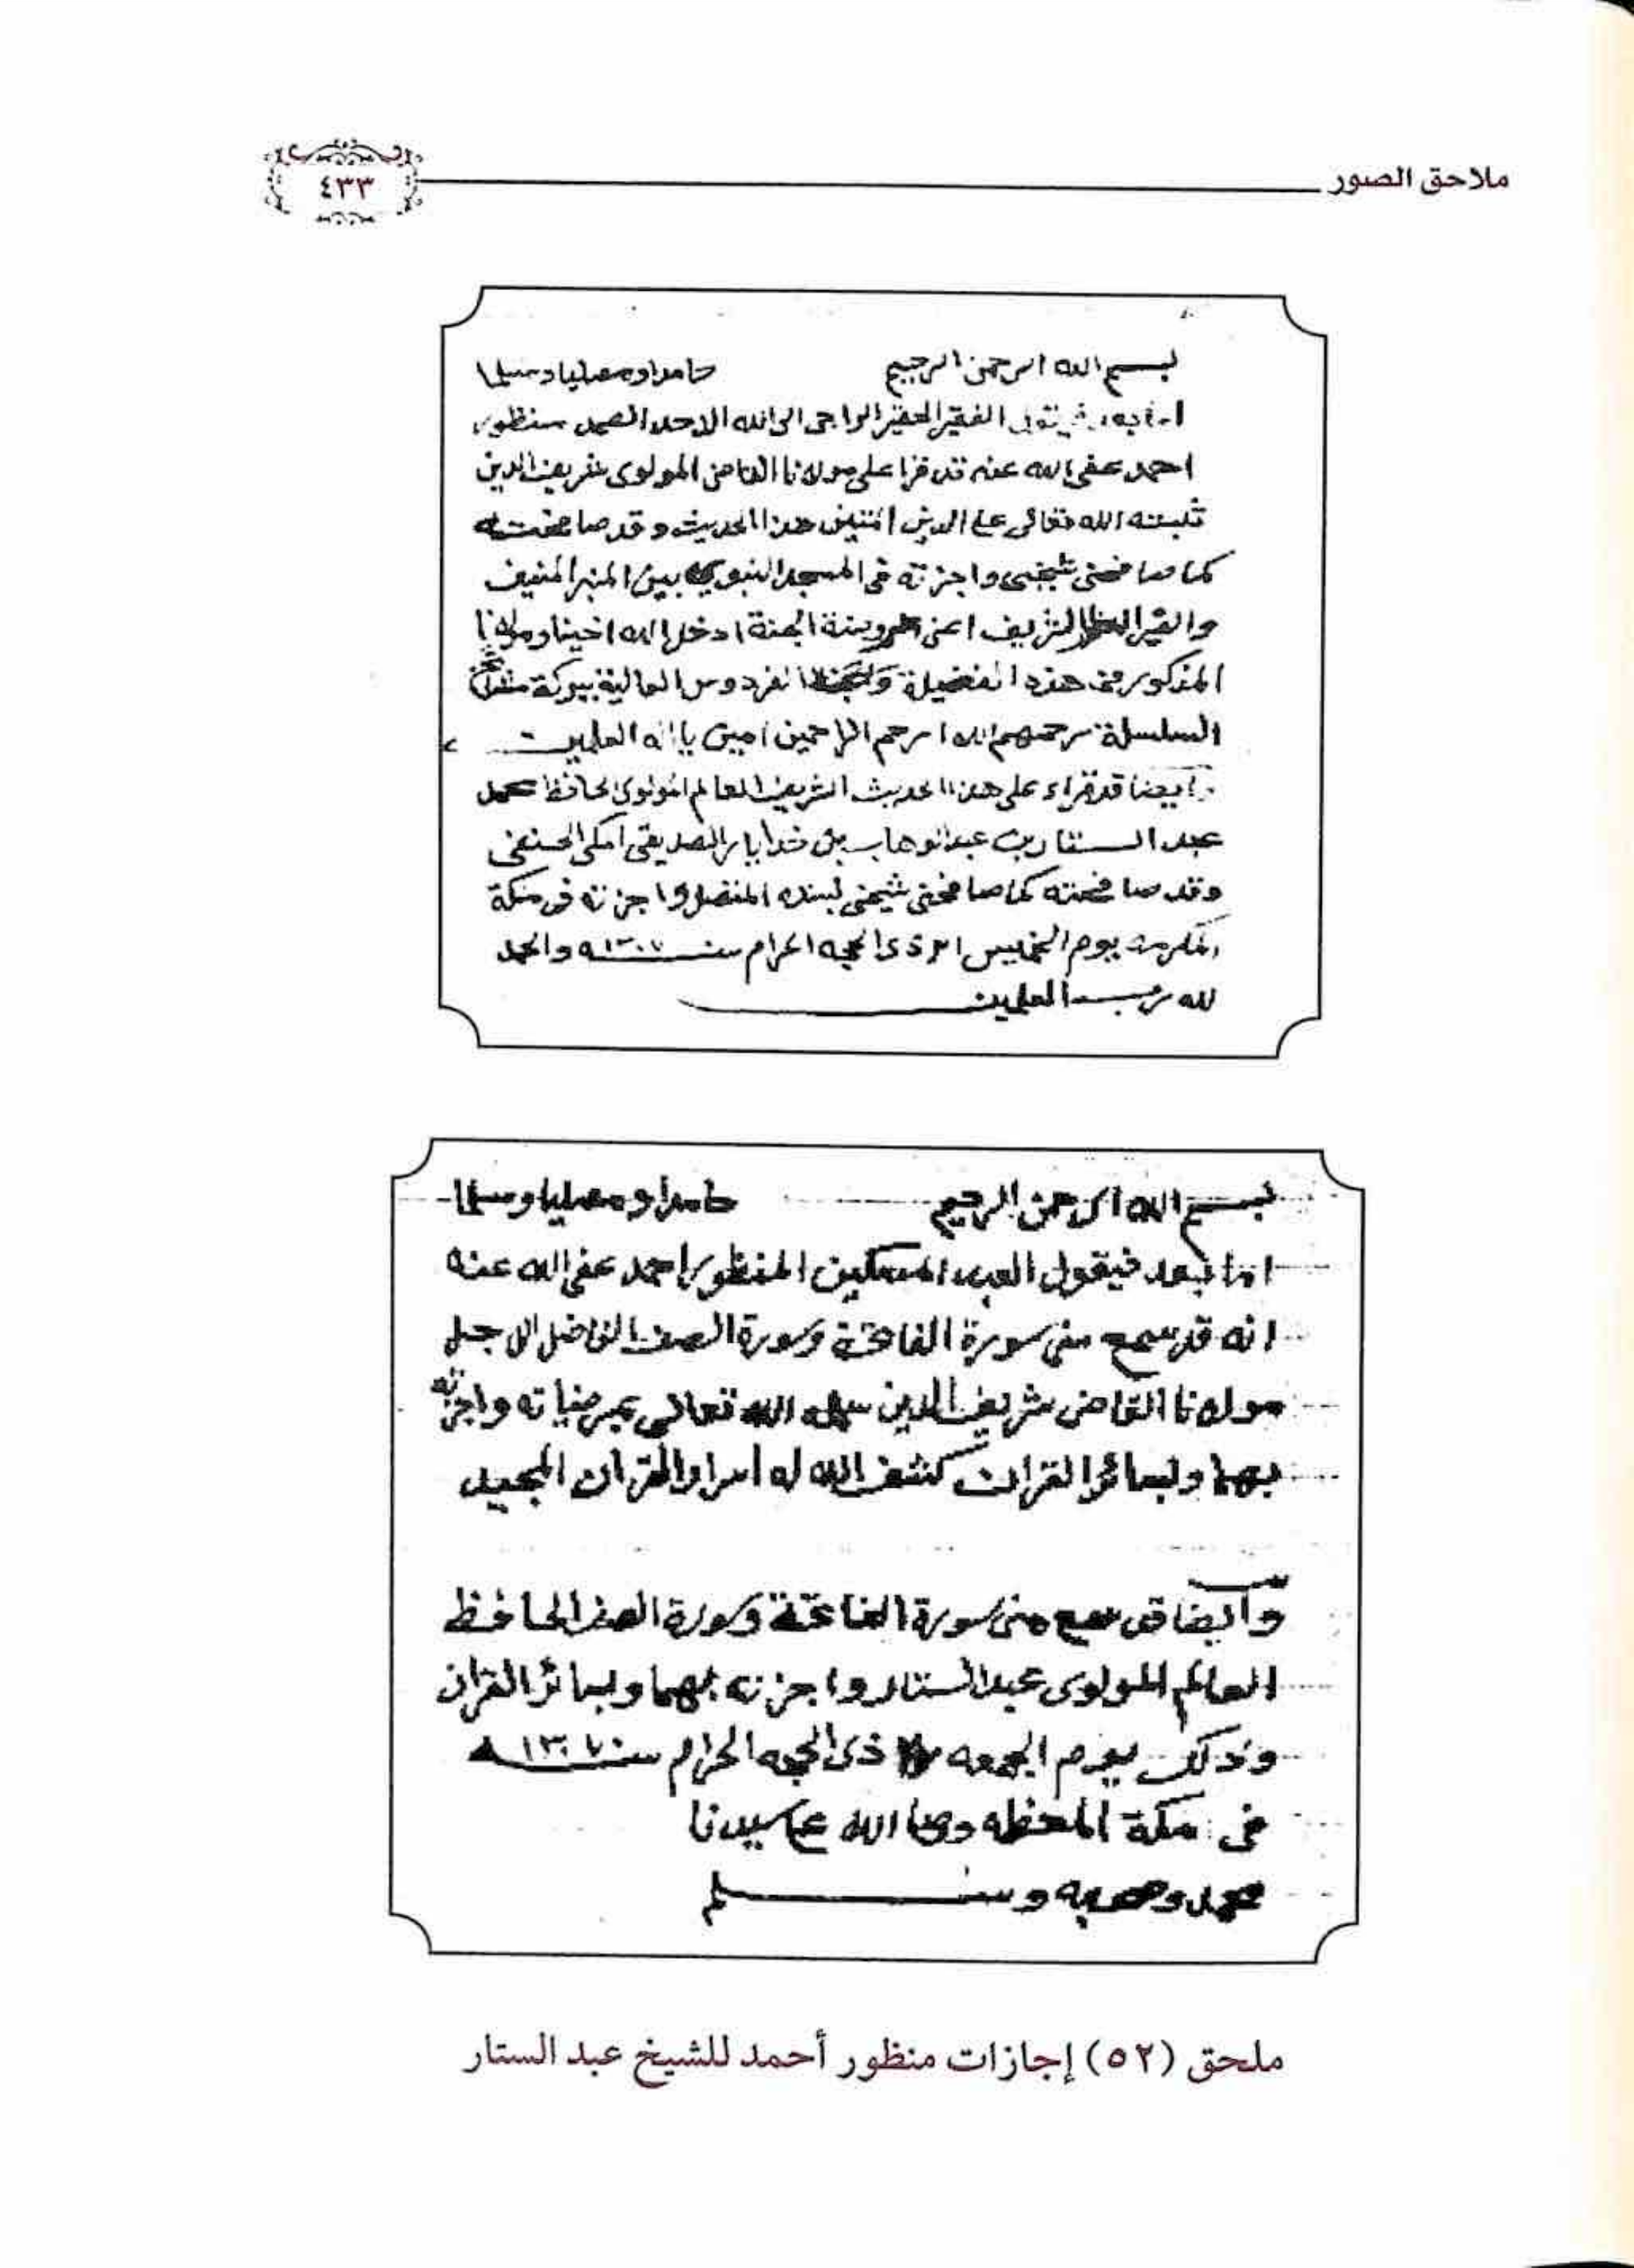 ملاحق الصور
٤٣٣
بسم الله الرحمن الرحيم حامدا ومصليا ومسلما
اما بعد فيقول الفقير الحقير الراجي الى الله الاحد الصمد منظور
احمد عفى الله عنه قد قرا على مولانا القاضى المولوى شريف الدين
ثبته الله تعالى على الدين المتين هذا الحديث وقد صافحته
كما صافحنى شيخى واجزته فى المسجد النبوى بين المنبر المنيف
والقبر الشريف اعنى روضة الجنة ادخل الله اخينا ومولانا
المذكور فى هذه الفضيلة الفردوس العالية ببركة مشائخ
السلسلة رحمهم الله ارحم الراحمين امين يا اله العلمين
وايضا قد قراء على هذا الحديث الشريف العالم المولوى الحافظ محمد
عبد الستار بن عبد الوهاب بن خدايار الصديقى المكى الحنفى
وقد صافحته كما صافحنى شيخى بسنده المتصل واجزته فى مكة
المكرمة يوم الخميس ذى الحجه الحرام سنه ١٣٠٧ والحمد
لله رب العلمين
بسم الله الرحمن الرحيم حامدا ومصليا ومسلما
اما بعد فيقول العبد المسكين المنظور احمد عفى الله عنه
انه قد سمع منى سورة الفاتحة وسورة الصف الفاضل الاجل
مولانا القاضى شريف الدين سلمه الله تعالى بمرضياته واجزته
بهما وبسائر القران كشف الله له اسرار القران المجيد
وايضا قد سمع منى سورة الفاتحة وسورة الصف الحافظ
العالم المولوى عبد الستار واجزته بهما وبسائر القران
وذلك يوم الجمعه ذى الحجه الحرام سنه ١٣٠٧
فى مكة المعظمه وصلى الله على سيدنا
محمد وصحبه وسلم
ملحق (٥٢) إجازات منظور أحمد للشيخ عبد الستار